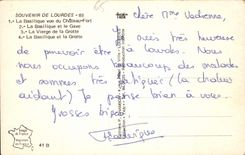 SOUVENIR DE LOURDES - 63
1.- La Basilique vue du Château-Fort
2.- La Basilique et le Gave
3.- La Vierge de la Grotte
4.- La Basilique et la Grotte
Chère Mme
suis très heureuse
de pouvoir être à Lourdes. Nous
nous occupons beaucoup des malades
et sommes très fatigués (la chaleur
aidant) Je pense bien à vous.
Grosses bises.
41 B